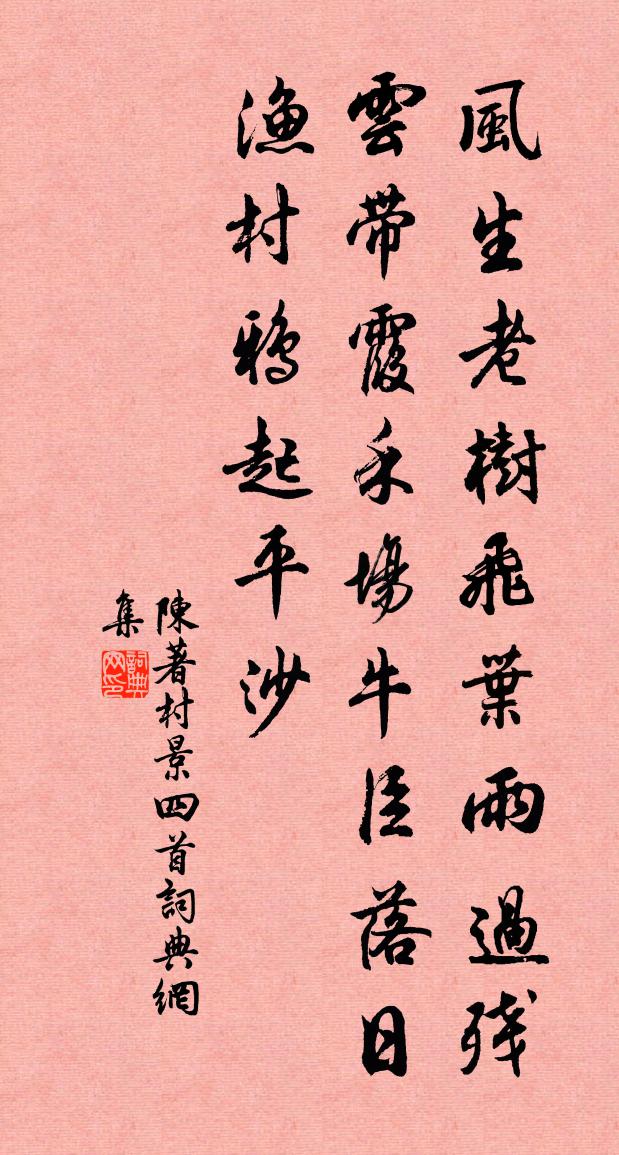 風生老樹飛葉雨過殘
雲帶霞禾場牛臣落日
漁村鴉起平沙
陳著村景四首詞典網
集
詞典網印